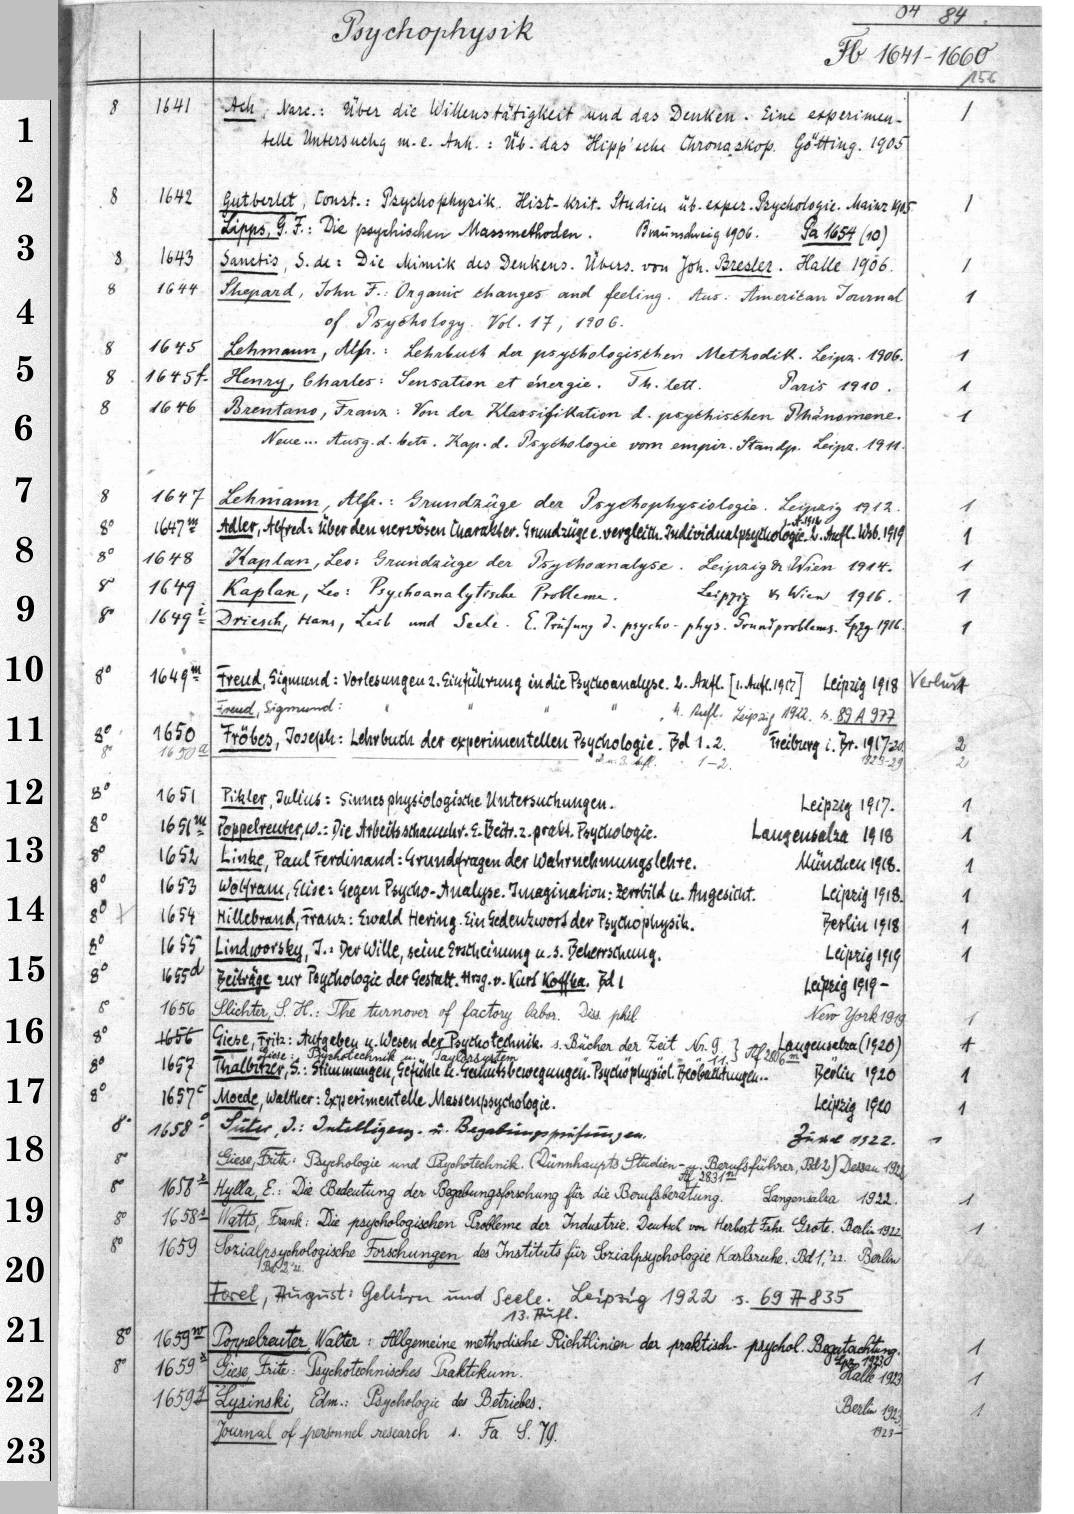 04 84.
Psychophysik
Fb 1641-1660
156
8 1641 Ach, Narc.: Über die Willenstätigkeit und das Denken. Eine experimen- 1
1
telle Untersuchg m. e. Anh.: Üb. das Hipp'sche Chronoskop. Götting. 1905
2
8 1642 Gutberlet, Const.: Psychophysik. Hist-krit. Studien üb. exper. Psychologie. Mainz 1905 1
Lipps, G. F.: Die psychischen Massmethoden. Braunschweig 1906. Pa 1654 (10)
3
8 1643 Sanctis, S. de: Die Mimik des Denkens. Übers. von Joh. Bresler. Halle 1906. 1
8 1644 Shepard, John F.: Organic changes and feeling. Aus: American Journal 1
4
of Psychology. Vol. 17, 1906.
8 1645 Lehmann, Alfr.: Lehrbuch der psychologischen Methodik. Leipz. 1906. 1
5
8 1645f. Henry, Charles: Sensation et énergie. Th. lett. Paris 1910. 1
8 1646 Brentano, Franz: Von der Klassifikation d. psychischen Phänomene. 1
6
Neue... Ausg. d. betr. Kap. d. Psychologie vom empir. Standp. Leipz. 1911.
7
8 1647 Lehmann, Alfr.: Grundzüge der Psychophysiologie. Leipzig 1912. 1
8° 1647m Adler, Alfred: Über den nervösen Charakter. Grundzüge e. vergleich. Individualpsychologie. 2. Aufl. Wsb. 1919 1
8
8° 1648 Kaplan, Leo: Grundzüge der Psychoanalyse. Leipzig & Wien 1914. 1
8° 1649 Kaplan, Leo: Psychoanalytische Probleme. Leipzig & Wien 1916. 1
9
8° 1649i Driesch, Hans, Leib und Seele. E. Prüfung d. psycho-phys. Grundproblems. Lpzg 1916. 1
10
8° 1649m Freud, Sigmund: Vorlesungen z. Einführung in die Psychoanalyse. 2. Aufl. [1. Aufl. 1917] Leipzig 1918 Verlust
Freud, Sigmund: " " " " , 4. Aufl. Leipzig 1922. s. 89 A 977
11
8° 1650 Fröbes, Joseph: Lehrbuch der experimentellen Psychologie. Bd 1. 2. Freiburg i. Br. 1917-20. 2
8° 1650a 2. u. 3. Aufl. 1-2. 1923-29 2
12
8° 1651 Pikler, Julius: Sinnesphysiologische Untersuchungen. Leipzig 1917. 1
8° 1651m Poppelreuter, W.: Die Arbeitsschauuhr. E. Beitr. z. prakt. Psychologie. Langensalza 1918 1
13
8° 1652 Linke, Paul Ferdinand: Grundfragen der Wahrnehmungslehre. München 1918. 1
8° 1653 Wolfram, Elise: Gegen Psycho-Analyse. Imagination: Zerrbild u. Angesicht. Leipzig 1918. 1
14
8° 1654 Hillebrand, Franz: Ewald Hering. Ein Gedenkwort der Psychophysik. Berlin 1918 1
8° 1655 Lindworsky, J.: Der Wille, seine Erscheinung u. s. Beherrschung. Leipzig 1919 1
15
8° 1655d Beiträge zur Psychologie der Gestalt. Hrsg. v. Kurt Koffka. Bd 1 Leipzig 1919-
8 1656 Slichter, S. H.: The turnover of factory labor. Diss. phil. New York 1919 1
16
8° 1656 Giese, Fritz: Aufgaben u. Wesen der Psychotechnik. s. Bücher der Zeit Nr. 9. Langensalza (1920) 1
Giese: Psychotechnik u. Taylorsystem " " 11. } Af 2806m
8° 1657 Thalbitzer, S.: Stimmungen, Gefühle u. Gemütsbewegungen. Psychophysiol. Beobachtungen.. Berlin 1920 1
17
8° 1657c Moede, Walther: Experimentelle Massenpsychologie. Leipzig 1920 1
8° 1658 Suter, J.: Intelligenz- u. Begabungsprüfungen. Zürch 1922. 1
18
8° Giese, Fritz: Psychologie und Psychotechnik. (Dünnhaupts Studien- u. Berufsführer, Bd 2) Dessau 1922
Af 2831m
8° 1658 Hylla, E.: Die Bedeutung der Begabungsforschung für die Berufsberatung. Langensalza 1922. 1
19
8° 1658 Watts, Frank: Die psychologischen Probleme der Industrie. Deutsch von Herbert Frhr. Grote. Berlin 1922 1
8° 1659 Sozialpsychologische Forschungen des Instituts für Sozialpsychologie Karlsruhe. Bd 1, '22. Berlin
Bd 2 '22.
20
Forel, August: Gehirn und Seele. Leipzig 1922 s. 69 A 835
13. Aufl.
21
8° 1659w Poppelreuter, Walter: Allgemeine methodische Richtlinien der praktisch-psychol. Begutachtung. 1
Lpz. 1923
8° 1659x Giese, Fritz: Psychotechnisches Praktikum. Halle 1923 1
22
1659y Lysinski, Edm.: Psychologie des Betriebes. Berlin 1923 1
Journal of personnel research s. Fa S. 79. 1923-
23